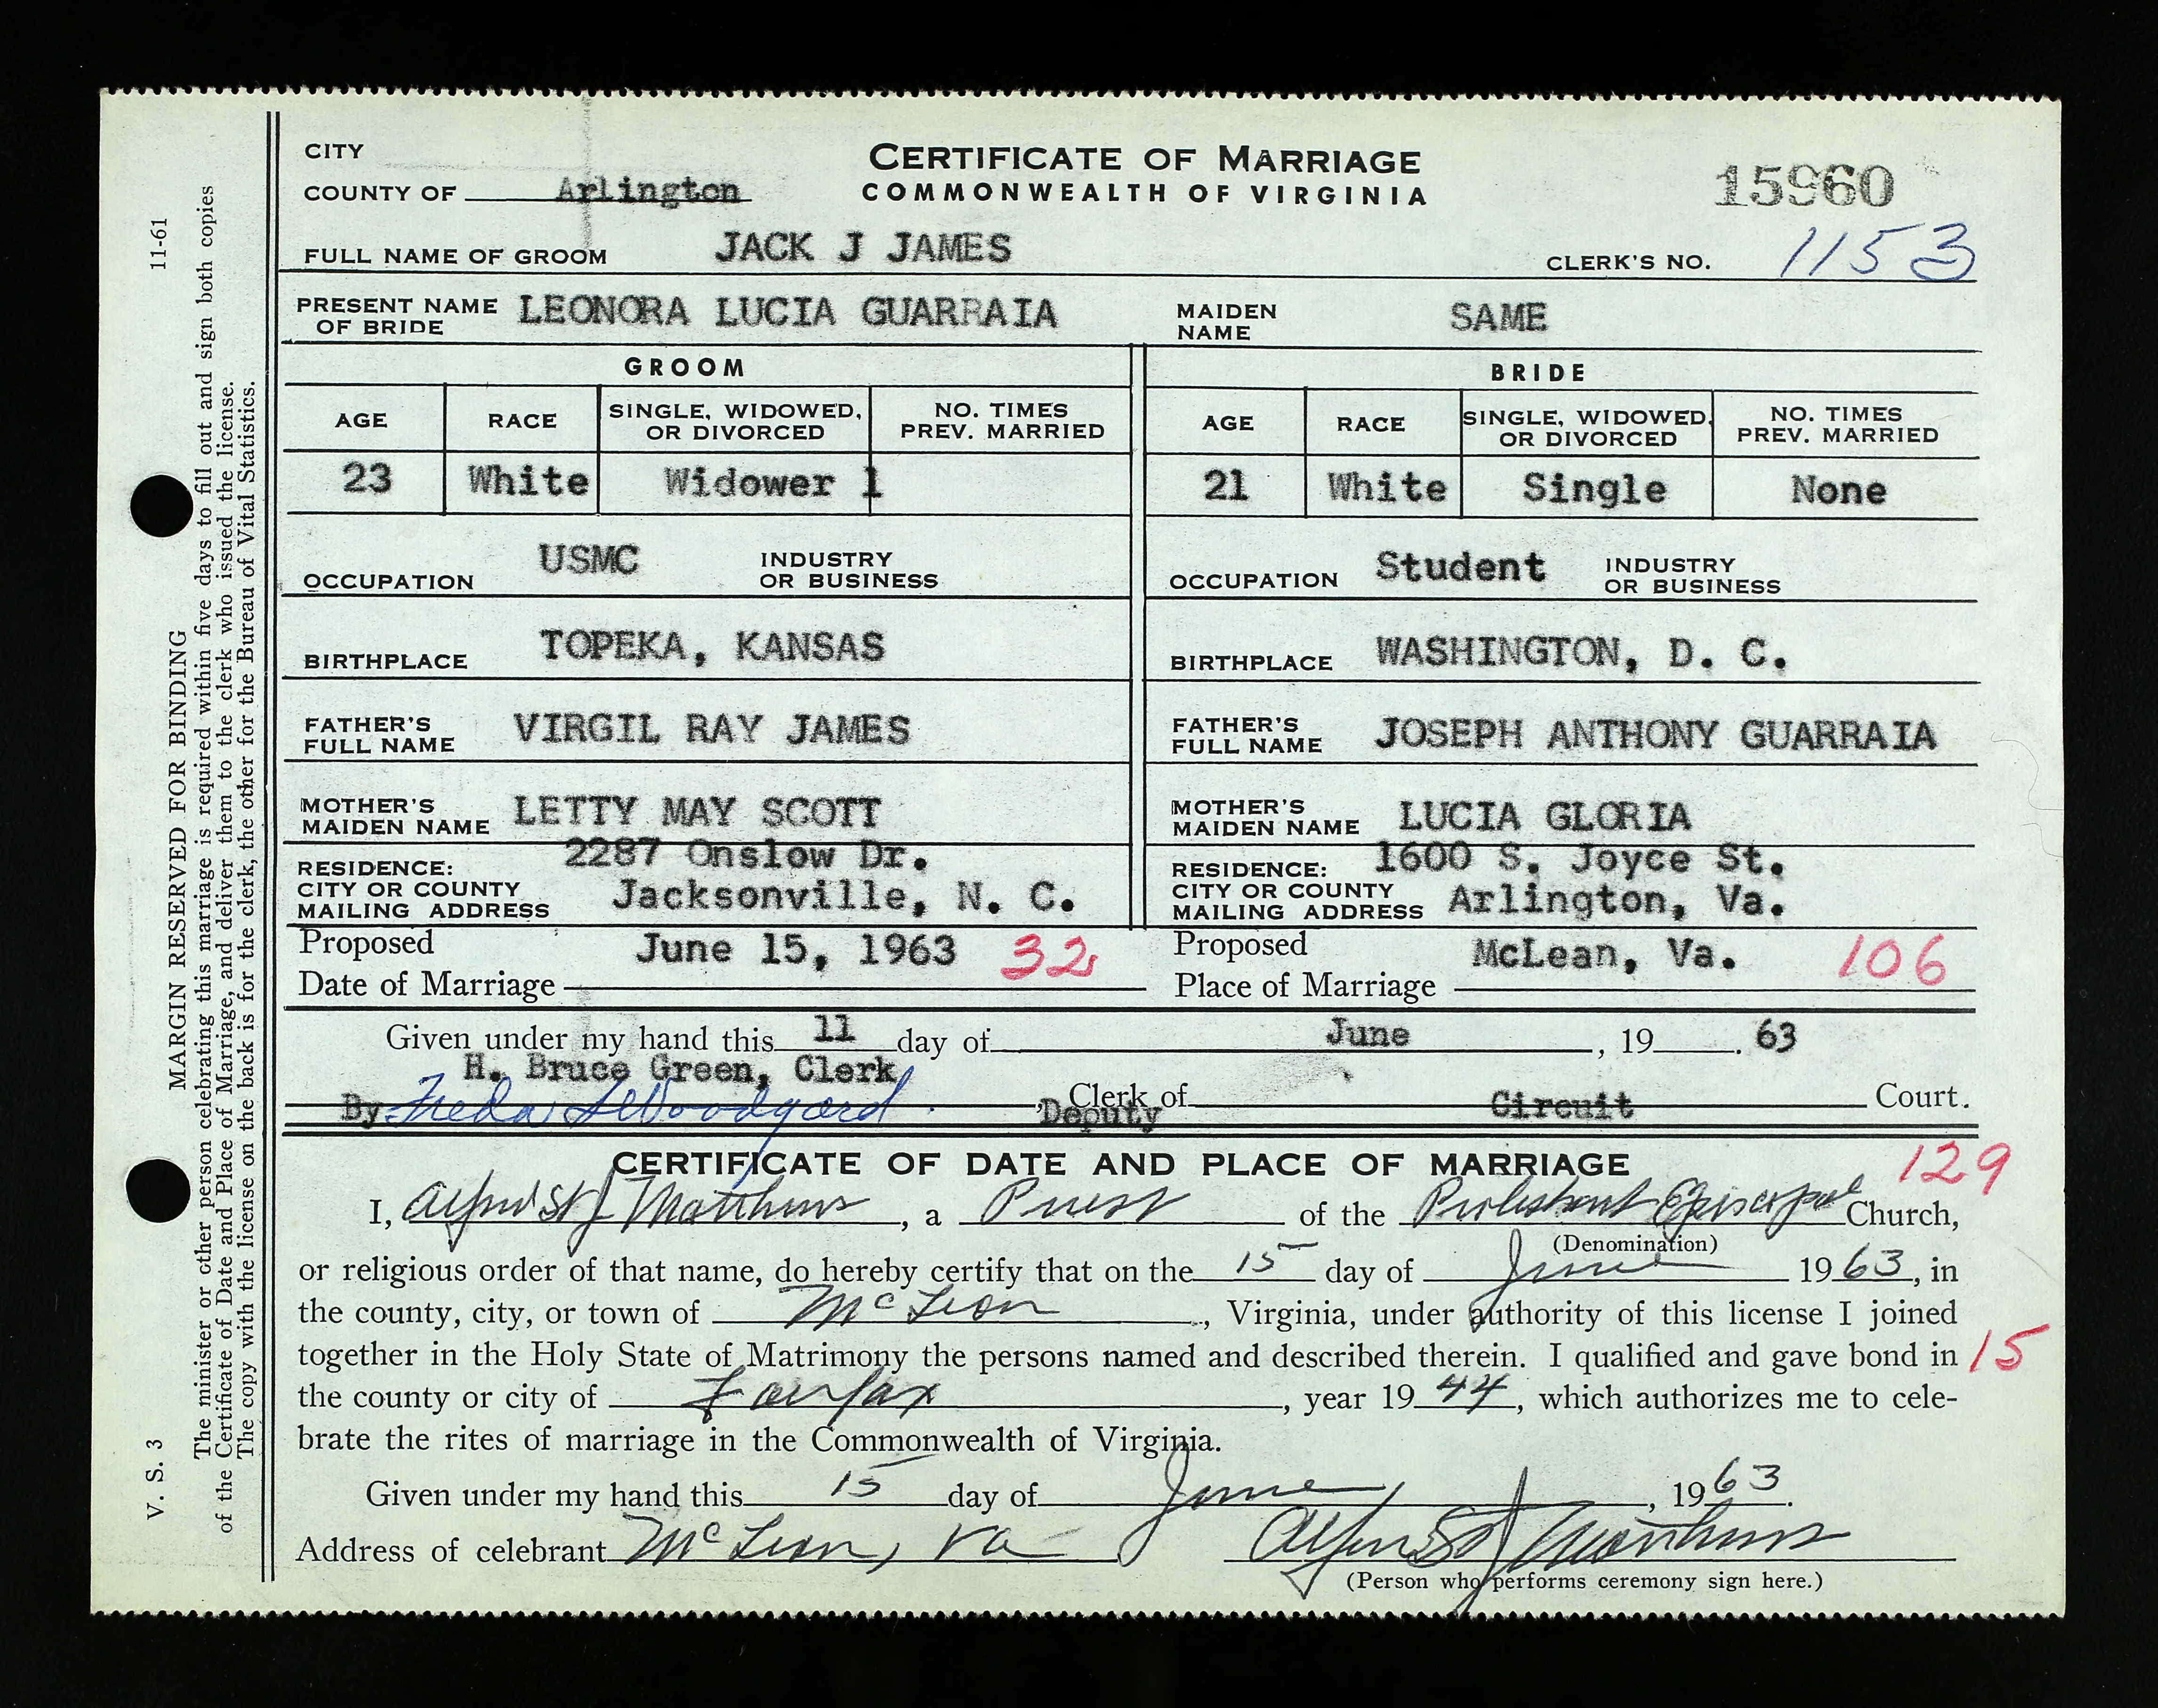 CITY
COUNTY OF Arlington
CERTIFICATE OF MARRIAGE
COMMONWEALTH OF VIRGINIA
15960
FULL NAME OF GROOM JACK J JAMES CLERK'S NO. 1153
PRESENT NAME OF BRIDE LEONORA LUCIA GUARRAIA MAIDEN NAME SAME
GROOM
AGE RACE SINGLE, WIDOWED, OR DIVORCED NO. TIMES PREV. MARRIED
23 White Widower 1
OCCUPATION USMC INDUSTRY OR BUSINESS
BIRTHPLACE TOPEKA, KANSAS
FATHER'S FULL NAME VIRGIL RAY JAMES
MOTHER'S MAIDEN NAME LETTY MAY SCOTT
RESIDENCE: 2287 Onslow Dr.
CITY OR COUNTY
MAILING ADDRESS Jacksonville, N. C.
BRIDE
AGE RACE SINGLE, WIDOWED, OR DIVORCED NO. TIMES PREV. MARRIED
21 White Single None
OCCUPATION Student INDUSTRY OR BUSINESS
BIRTHPLACE WASHINGTON, D. C.
FATHER'S FULL NAME JOSEPH ANTHONY GUARRAIA
MOTHER'S MAIDEN NAME LUCIA GLORIA
RESIDENCE: 1600 S. Joyce St.
CITY OR COUNTY
MAILING ADDRESS Arlington, Va.
Proposed Date of Marriage June 15, 1963 32
Proposed Place of Marriage McLean, Va. 106
Given under my hand this 11 day of June, 19 . 63
H. Bruce Green, Clerk
By Freda Woodyard, Deputy Clerk of Circuit Court.
CERTIFICATE OF DATE AND PLACE OF MARRIAGE 129
I, Alfred St J Matthews, a Priest of the Protestant Episcopal Church,
(Denomination)
or religious order of that name, do hereby certify that on the 15 day of June 1963, in
the county, city, or town of McLean, Virginia, under authority of this license I joined
together in the Holy State of Matrimony the persons named and described therein. I qualified and gave bond in 15
the county or city of Fairfax, year 1944, which authorizes me to cele-
brate the rites of marriage in the Commonwealth of Virginia.
Given under my hand this 15 day of June, 1963.
Address of celebrant McLean, Va Alfred St J Matthews
(Person who performs ceremony sign here.)
V. S. 3 MARGIN RESERVED FOR BINDING 11-61
The minister or other person celebrating this marriage is required within five days to fill out and sign both copies
of the Certificate of Date and Place of Marriage, and deliver them to the clerk who issued the license.
The copy with the license on the back is for the clerk, the other for the Bureau of Vital Statistics.